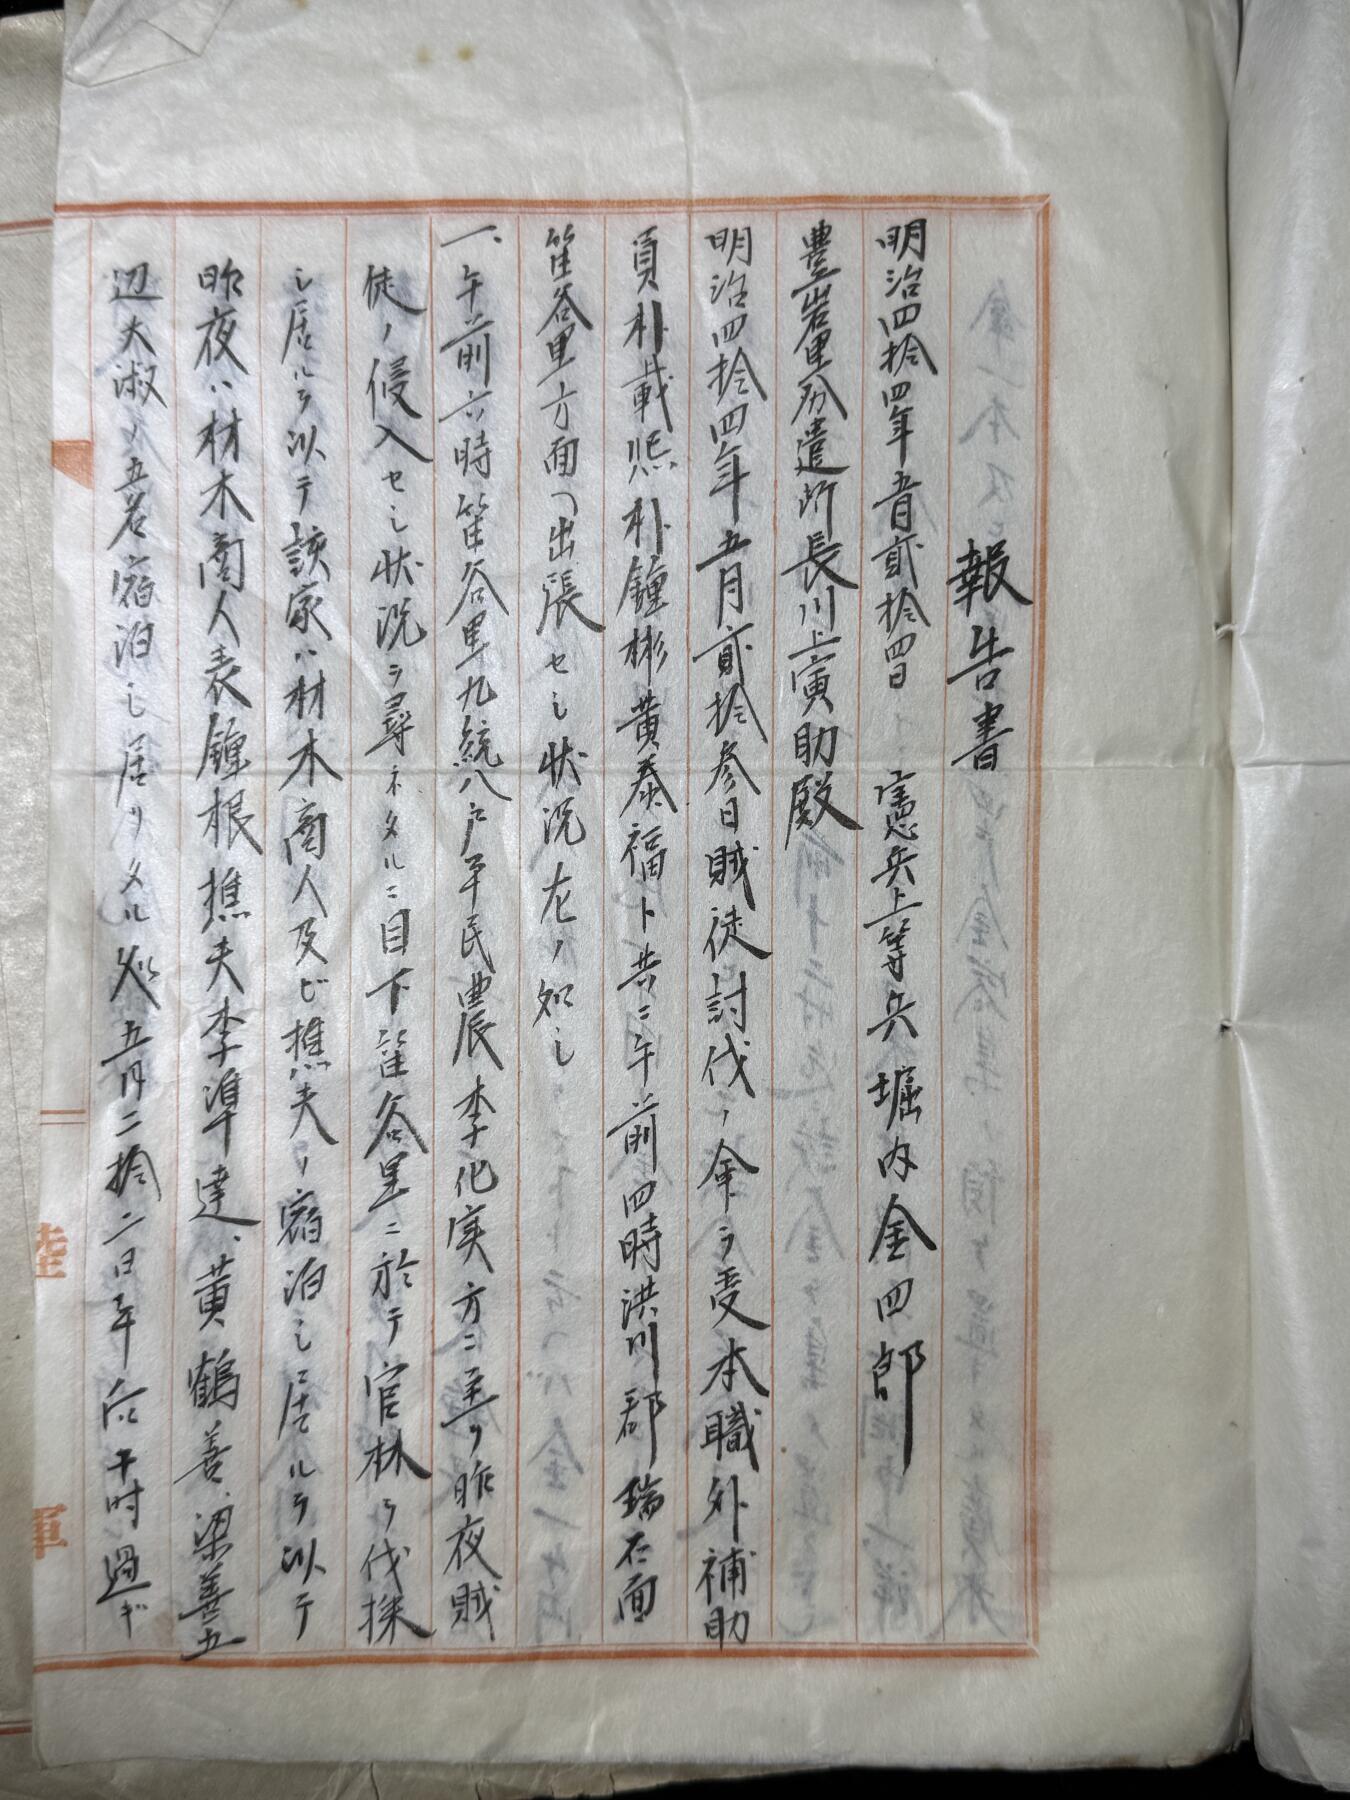 報告書
明治四拾四年五月貳拾四日 憲兵上等兵堀内金四郎
豊岩里分遣所長川上寅助殿
明治四拾四年五月貳拾参日賊徒討伐ノ命ヲ受本職外補助
員朴載熈朴鍾彬黄泰福ト共ニ午前四時洪川郡瑞石面
笙谷里方面へ出張セシ状況左ノ如シ
一、午前六時笙谷里九統八戸平民農李化実方ニ至リ昨夜賊
徒ノ侵入セシ状況ヲ尋ネタルニ目下笙谷里ニ於テ官林ヲ伐採
シ居ルヲ以テ該家ハ材木商人及ビ樵夫ノ宿泊シ居ルヲ以テ
昨夜ハ材木商人表鍾根樵夫李準達、黄鶴善、梁善五
辺大淑ノ五名宿泊シ居リタル処五月二拾二日午后十時過ギ
陸
軍